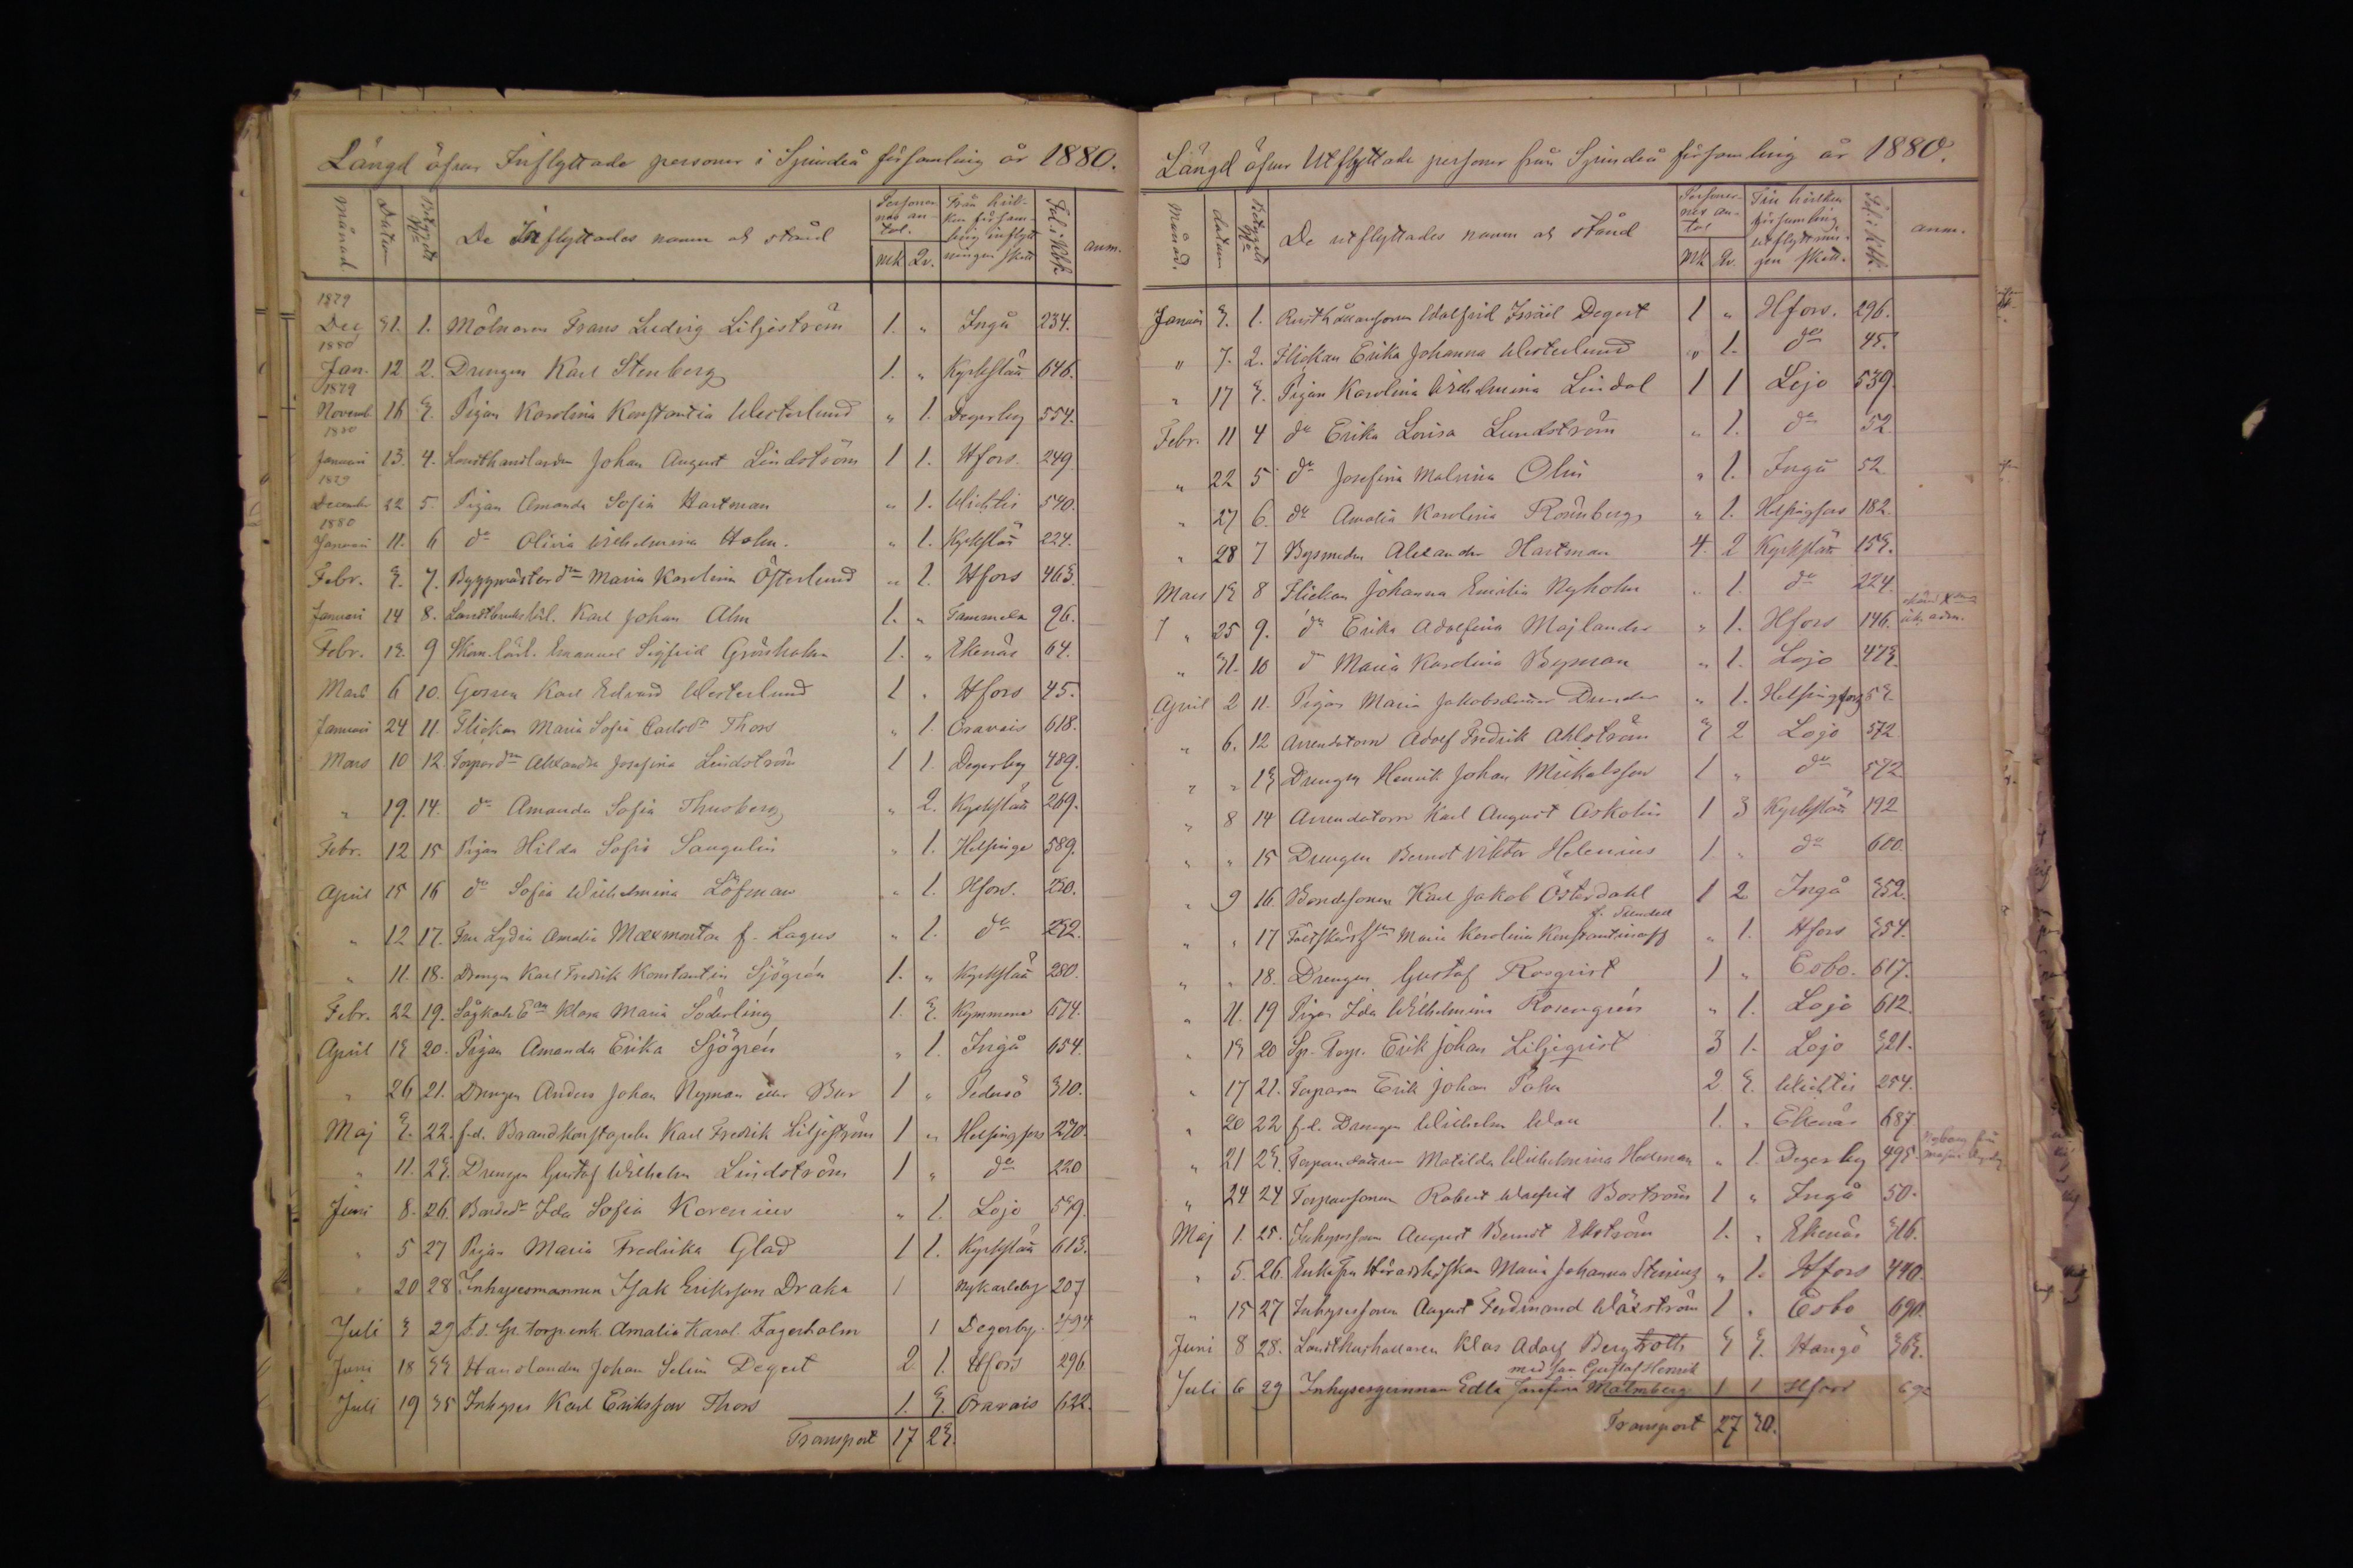 Längd öfver Inflyttade personer i Sjundeå församling år 1880.
Månad Datum Betygets No De Inflyttades namn och stånd Personernas antal. Mk. Qv. Från hvilken församling inflyttningen skett Fol. i Kbk. anm.
1879
Dec 31. 1. Mölnaren Frans Ludvig Liljeström 1. „ Ingå 234.
1880
Jan. 12 2. Drengen Karl Stenberg 1. „ Kyrkslätt 646.
1879
Novemb. 16 3. Pigan Karolina Konstantia Westerlund „ 1. Degerby 554.
1880
Januari 13. 4. Landthandlanden Johan August Lindström 1 1. Hfors. 249
1879
December 22 5. Pigan Amanda Sofia Hartman „ 1. Wichtis 540.
1880
Januari 11. 6 do Olivia Wilhelmina Holm. „ 1. Kyrkslätt 224.
Febr. 3. 7. Byggmästar dn Maria Karolina Österlund „ 1. Hfors 463.
Januari 14 8. Karl Johan Alm 1. „ Tammela 96.
Febr. 13. 9 Emanuel Sigfrid Grönholm 1. „ Ekenäs 64.
Mars 6 10. Gossen Karl Edvard Westerlund 1 „ Hfors 45.
Januari 24 11. Flickan Maria Sofia Carlsdr Thors „ 1. Oravais 618.
Mars 10 12. Torpardn Alexandra Josefina Lindström 1 1. Degerby 489.
„ 19. 14. do Amanda Sofia Thusberg „ 2. Kyrkslätt 269.
Febr. 12 15 Pigan Hilda Sofia Sangelin „ 1. Helsinge 589.
April 15 16 do Sofia Wilhelmina Löfman „ 1. Hfors. 250.
„ 12 17. Fru Lydia Amalia Maxmontan f. Lagus „ 1. do 252.
„ 11. 18. Drengen Karl Fredrik Konstantin Sjögrén 1. „ Kyrkslätt 280.
Febr. 22 19. Klara Maria Söderling 1. 3. Kymmene 674.
April 13 20. Pigan Amanda Erika Sjögrén „ 1. Ingå 654.
„ 26 21. Drengen Anders Johan Nyman eller Bur 1 „ Pedersö 310.
Maj 3. 22. f.d. Brandkonstapeln Karl Fredrik Liljeström 1 „ Helsingfors 270.
„ 11. 23. Drengen Gustaf Wilhelm Lindström 1 „ do 220
Juni 8. 26. Bondedr Ida Sofia Korenius „ 1. Lojo 579.
„ 5 27 Pigan Maria Fredrika Glad 1 1. Kyrkslätt 613.
„ 20 28 Inhysesmannen Isak Eriksson Draka 1 Nykarleby 207
Juli 3 29 F.d. Sp. torp.enk. Amalia Karol. Fagerholm 1 Degerby. 494
Juni 18 33 Handlanden Johan Selim Degert 2 1. Hfors 296
Juli 19 35 Inhyses Karl Eriksson Thors 1. 3. Oravais 622.
Transport 17 23.
Längd öfver Utflyttade personer från Sjundeå församling år 1880.
Månad. datum Betygets No De utflyttades namn och stånd Personernas antal Mk. Qv. Till hvilken församling utflyttningen skett. Fol. i Kbk. anm.
Januari 3. 1. Rusthållaresonen Walfrid Israël Degert 1 „ Hfors. 296.
„ 7. 2. Flickan Erika Johanna Westerlund „ 1. do 45.
„ 17 3. Pigan Karolina Wilhelmina Lindal 1 1 Lojo 539.
Febr. 11 4 do Erika Lovisa Lundström „ 1. do 52
„ 22 5 do Josefina Malvina Olin „ 1. Ingå 52
„ 27 6. do Amalia Karolina Rönnberg „ 1. Helsingfors 182.
„ 28 7 Bysmeden Alexander Hartman 4. 2 Kyrkslätt 153.
Mars 13 8 Flickan Johanna Emilia Nyholm „ 1. do 224.
„ 25 9. do Erika Adolfina Majlander „ 1. Hfors 146.
„ 31. 10 do Maria Karolina Byman „ 1. Lojo 473.
April 2 11. Pigan Maria Jakobsdotter Dunder „ 1. Helsingfors 53.
„ 6. 12 Arrendatorn Adolf Fredrik Ahlström 3 2 Lojo 572
„ „ 13 Drengen Henrik Johan Mickelsson 1 „ do 572
„ 8 14 Arrendatorn Karl August Askolin 1 3 Kyrkslätt 192
„ „ 15 Drengen Berndt Viktor Helenius 1 „ do 600.
„ 9 16 Bondesonen Karl Jakob Österdahl 1 2 Ingå 352.
„ „ 17 Maria Karolina Konstantinoff „ 1. Hfors 354.
„ „ 18. Drengen Gustaf Rosqvist 1 „ Esbo. 617.
„ 11. 19 Pigan Ida Wilhelmina Rosengrén „ 1. Lojo 612.
„ 13 20 Sp. Torp. Erik Johan Liljeqvist 3 1. Lojo 321.
„ 17 21. Torparen Erik Johan Palm 2 3. Wichtis 254.
„ 20 22 f.d. Drengen Wilhelm Wan 1. „ Ekenäs 687
„ 21 23. Torparedottern Matilda Wilhelmina Hedman „ 1. Degerby 495.
„ 24 24 Torparesonen Robert Walfrid Boström 1 „ Ingå 50.
Maj 1. 25. Inhysessonen August Berndt Ekström 1. „ Ekenäs 316.
„ 5. 26. Enkefru Häradshöfskan Maria Johanna Stenius „ 1. Hfors 440.
„ 15 27 Inhysessonen August Ferdinand Wäxström 1 „ Esbo 690.
Juni 8 28. Landthushållaren Klas Adolf Bergroth 3 3. Hangö 363.
med son Gustaf Henrik
Juli 6 29 Inhysesqvinnan Edla Josefina Malmberg 1 1 Hfors
Transport 27 30.